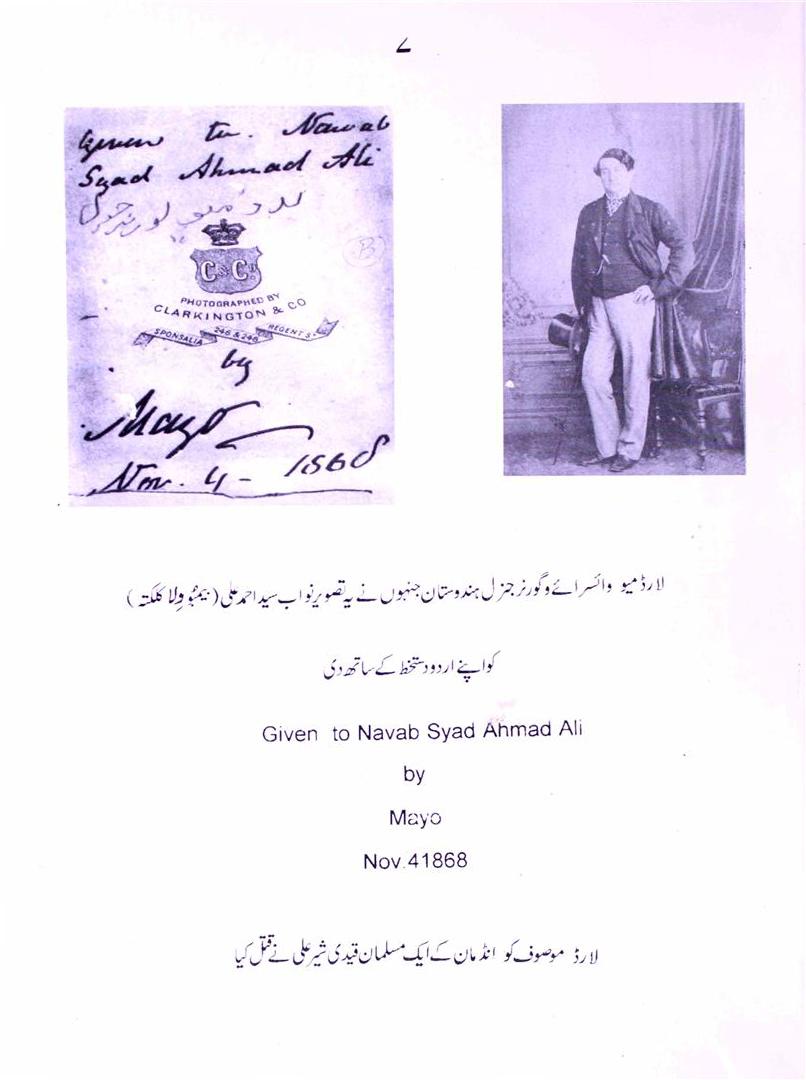 7
Given to. Nawab
Syad Ahmad Ali
لارد میو گورنر جنرل
B
C & Co
PHOTOGRAPHED BY
CLARKINGTON & CO
SPONSALIA 246 & 248 REGENT ST
by
Mayo
Nov. 4 - 1868
لارڈ میو وائسرائے و گورنر جنرل ہندوستان جنہوں نے یہ تصویر نواب سید احمد علی ( ولا کلکتہ )
کو اپنے اردو دستخط کے ساتھ دی
Given to Navab Syad Ahmad Ali
by
Mayo
Nov.41868
لارڈ موصوف کو انڈمان کے ایک مسلمان قیدی شیر علی نے قتل کیا